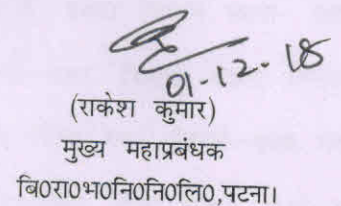 01-12-18
(राकेश कुमार)
मुख्य महाप्रबंधक
बि०रा०भ०नि०नि०लि०,पटना।